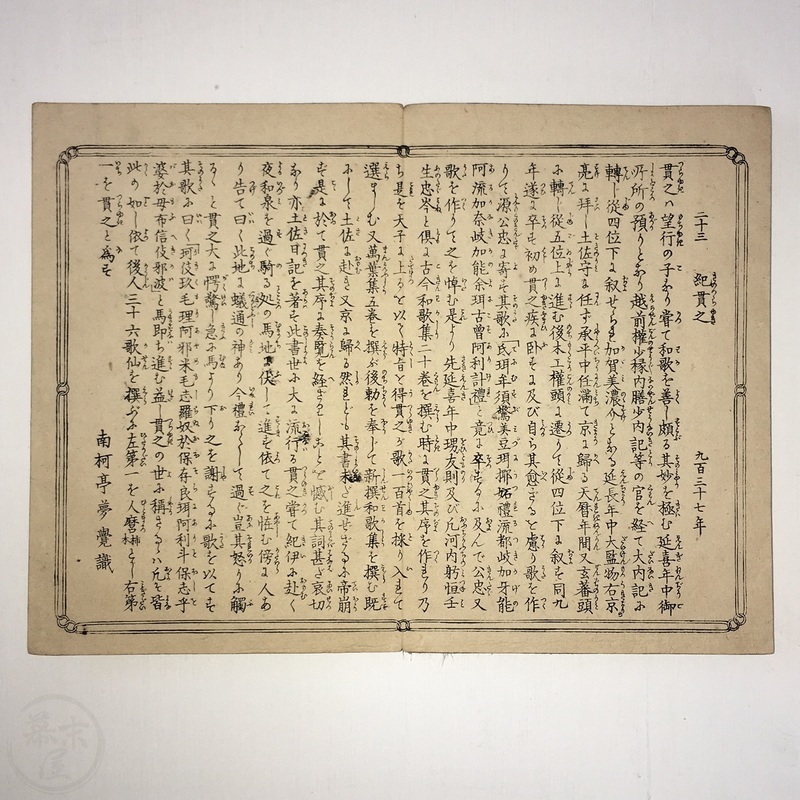 二十三 紀貫之 九百三十七年
貫之ハ望行の子なり甞て和歌を善し頗る其妙を極む延喜年中御
所の預りとなり越前權少椽内膳少内記等の官を経て大内記に
轉じ從四位下に叙せらる加賀美濃介となる延長年中大監物右京
亮に拜し土佐守に任ず承平中任滿て京に歸る天暦年間又玄蕃頭
に轉じ從五位上に進む後木工權頭に遷りて從四位下に叙す同九
年遂に卒す初め貫之疾に卧すに及び自ら其愈ざるを慮り歌を作
りて源公忠に寄す其歌に氐珥牟須驚美豆珥揶姤禮流都岐加牙能
阿流加奈岐加能余珥古曾阿利計禮と竟に卒するに及んで公忠又
歌を作りて之を悼む是より先延喜年中甥友則及び凡河内躬恒壬
生忠岑と倶に古今和歌集二十巻を撰む時に貫之其序を作れり乃
ち是を天子に上るを以て特旨を得貫之が歌一百首を採り入れて
選ましむ又萬葉集五巻を撰が後勅を奉じて新撰和歌集を撰む既
にして土佐に赴き又京に歸る然れども其書未だ進せざるに帝崩
ず是に於て貫之其序に奏覧を経ざりしことを憾む其詞甚だ哀切
なり亦土佐日記を著す此書世に大に流行る貫之甞て紀伊に赴く
夜和泉を過ぐ騎る処の馬地に伏して進ず依て之を恠む傍に人あ
り告て曰く此地に蟻通の神あり今禮なくして過ぐ豈其怒りに觸
るゝと貫之大に愕驚し急に馬より下り之を謝するに歌を以てす
其歌に曰く珂伎玖毛理阿邪米毛志羅奴於保存良珥阿利斗保志乎
婆於毋布信伎邪波と馬即ち進む益し貫之の世に稱さるゝハ先を皆
此の如し依て後人三十六歌仙を撰ぶに左第一を人麿柿本とし右第
一を貫之と為す
南柯亭夢覺識